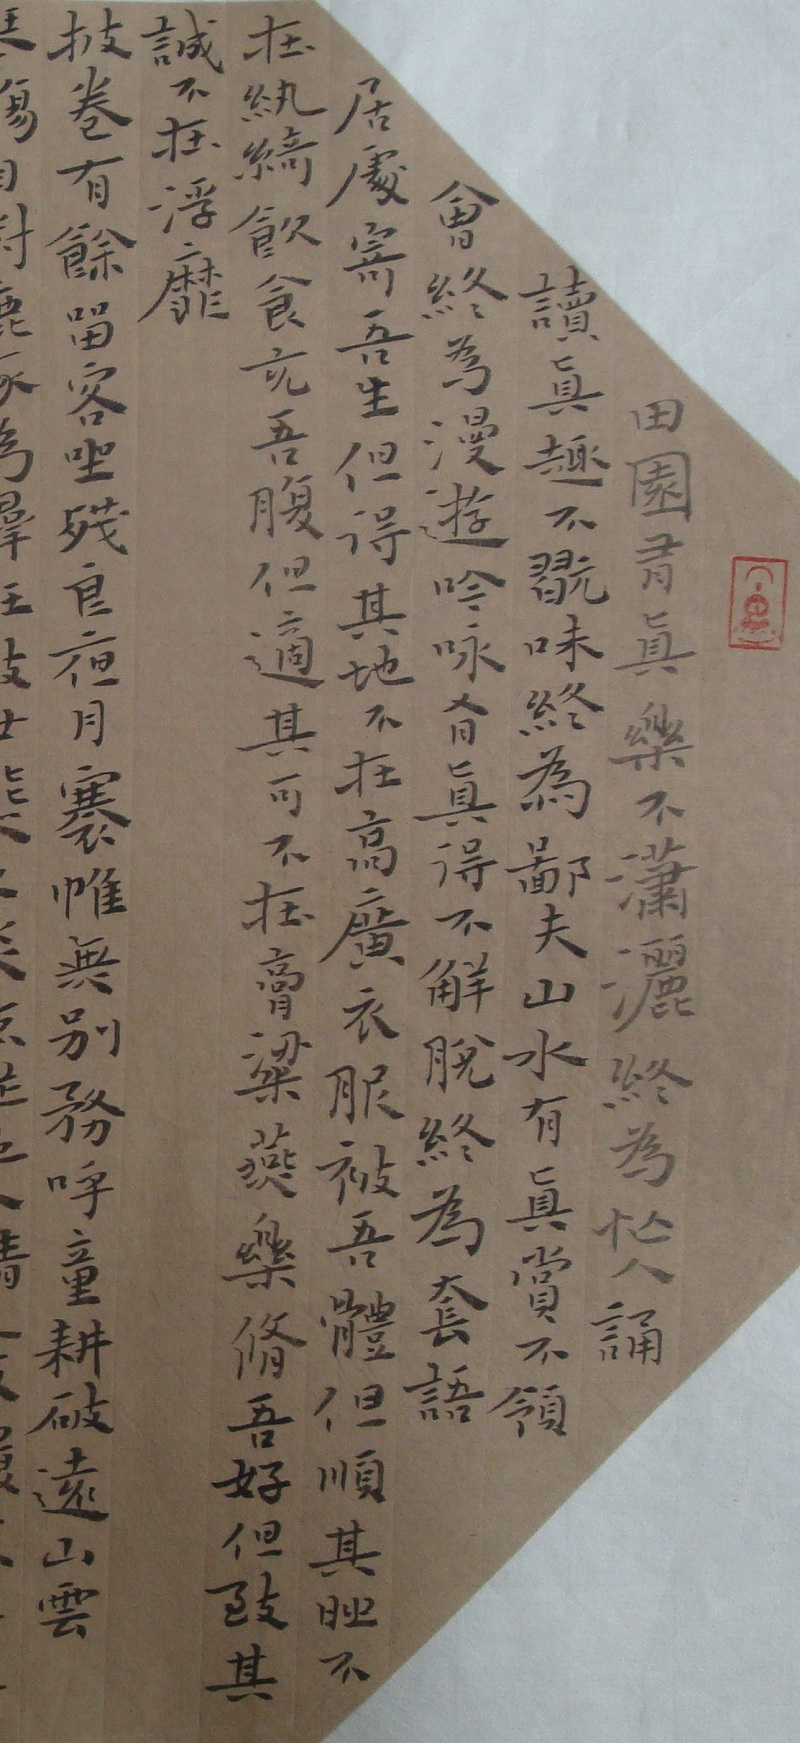 田園有眞樂不瀟灑終為忙人誦
讀眞趣不翫味終為鄙夫山水有眞賞不領
會終為漫遊吟咏有眞得不解脫終為套語
居處寄吾生但得其地不在高廣衣服被吾體但順其時不
在紈綺飲食充吾腹但適其可不在膏粱燕樂脩吾好但致其
誠不在浮靡
披卷有餘留客坐殘良夜月褰帷無別務呼童耕破遠山雲